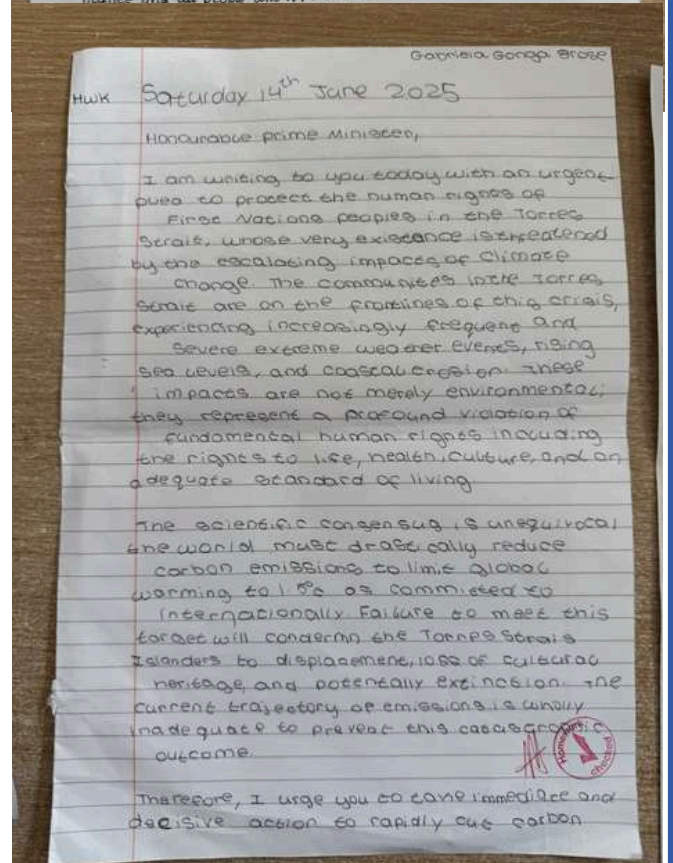 Gabriela Gonga Brose
HWK Saturday 14th June 2025
Honourable prime Minister,
I am writing to you today with an urgent
plea to protect the human rights of
First Nations peoples in the Torres
Strait, whose very existance is threatened
by the escalating impacts of Climate
Change. The communities in the Torres
Strait are on the frontlines of this crisis,
experiencing increasingly frequent and
severe extreme weather events, rising
sea levels, and coastal erosion. These
impacts are not merely environmental;
they represent a profound violation of
fundamental human rights including
the rights to life, health, culture, and an
adequate standard of living.
The scientific consensus is unequivocal
the world must drastically reduce
carbon emissions to limit global
warming to as commited to
internationally Failure to meet this
target will condermn the Torres Strais
Islanders to displacement, loss of cultural
heritage, and potentally extinction. The
current trajectory of emissions is wholly
inadequate to prevent this catastrophic
outcome.
Homework checked
Therefore, I urge you to take immediate and
decisive action to rapidly cut carbon